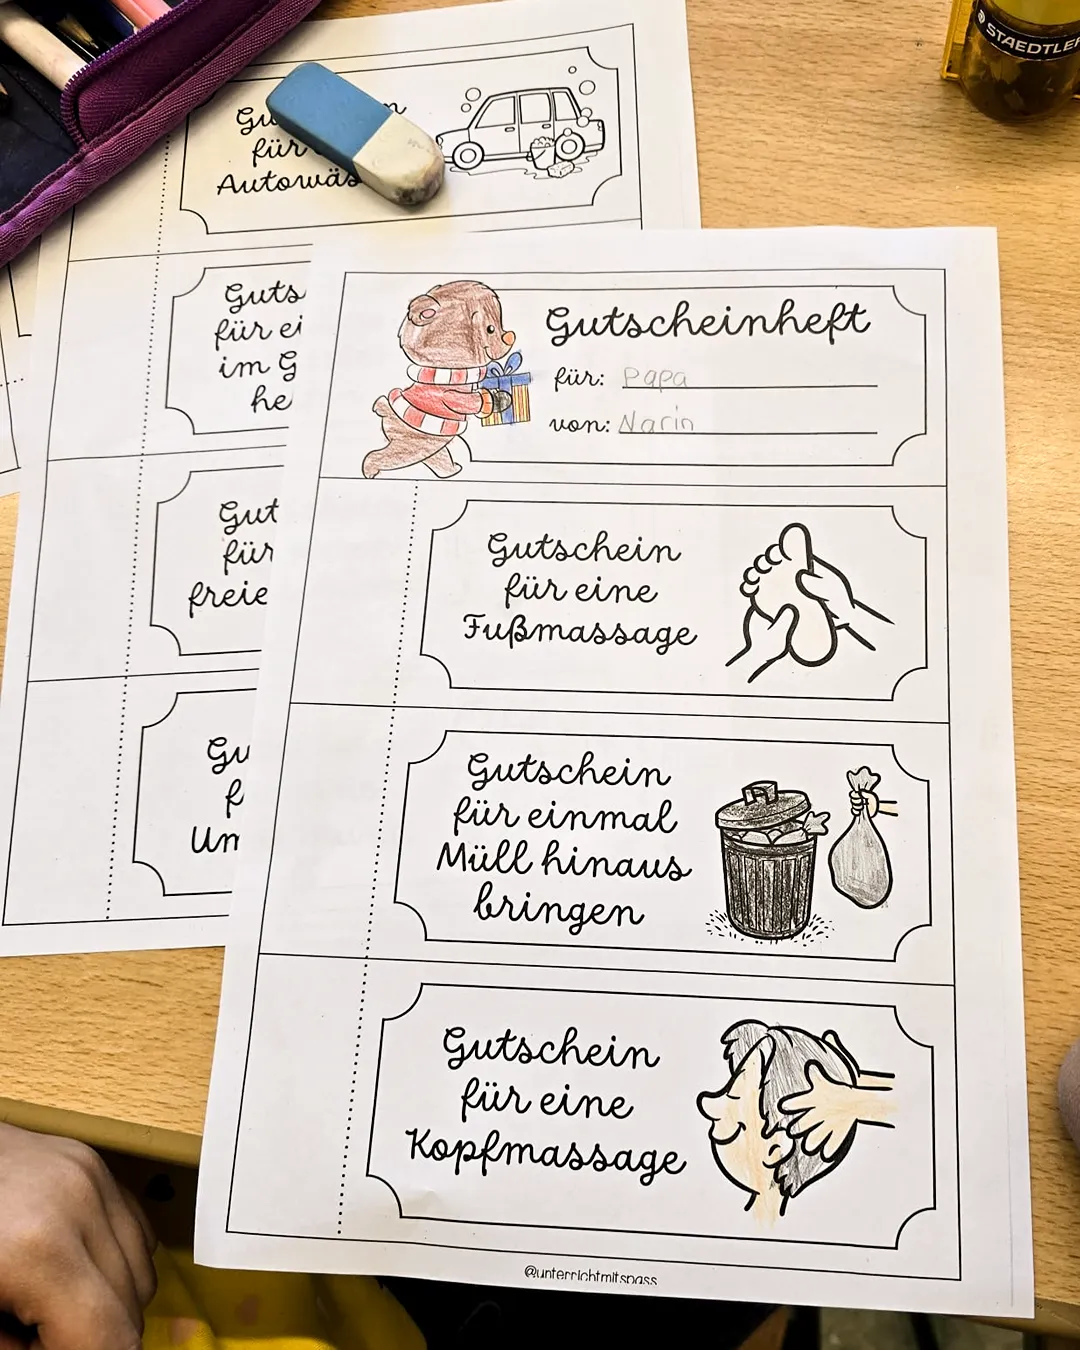 STAEDTLER
für
Autowäs
Guts
für ei
im G
he
Gut
für
freie
Gu
f
Um
Gutscheinheft
für: Papa
von: Narin
Gutschein
für eine
Fußmassage
Gutschein
für einmal
Müll hinaus
bringen
Gutschein
für eine
Kopfmassage
@unterrichtmitspass